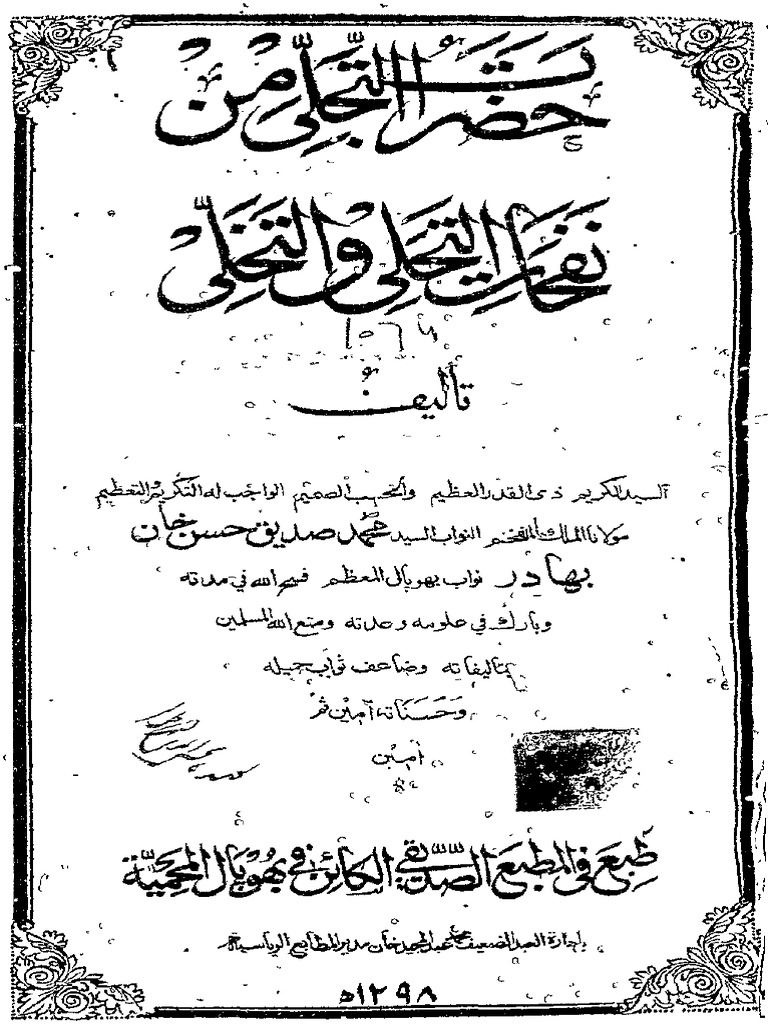 حضرات التجلي من
نفحات التحلي والتخلي
تأليف
السيد الكريم ذي القدر العظيم والحسب الصميم الواجب له التكريم والتعظيم
مولانا الملك المفخم النواب السيد محمد صديق حسن خان
بهادر نواب بهوپال المعظم فسح الله في مدته
وبارك في علومه وحدته ومتع الله المسلمين
بتاليفاته وضاعف ثواب جميله
وحسناته آمين ثم
آمين
طبع في المطبع الصديقي الكائن في بهوپال المحمية
بادارة العبد الضعيف محمد عبد المجيد خان مدير المطابع الرياسية
١٢٩٨ه